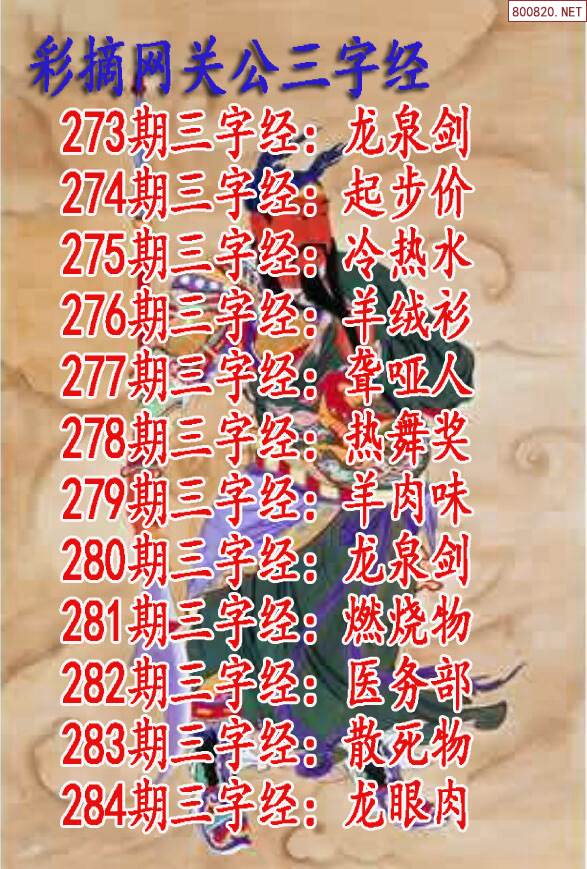 800820.NET
彩摘网关公三字经
273期三字经：龙泉剑
274期三字经：起步价
275期三字经：冷热水
276期三字经：羊绒衫
277期三字经：聋哑人
278期三字经：热舞奖
279期三字经：羊肉味
280期三字经：龙泉剑
281期三字经：燃烧物
282期三字经：医务部
283期三字经：散死物
284期三字经：龙眼肉